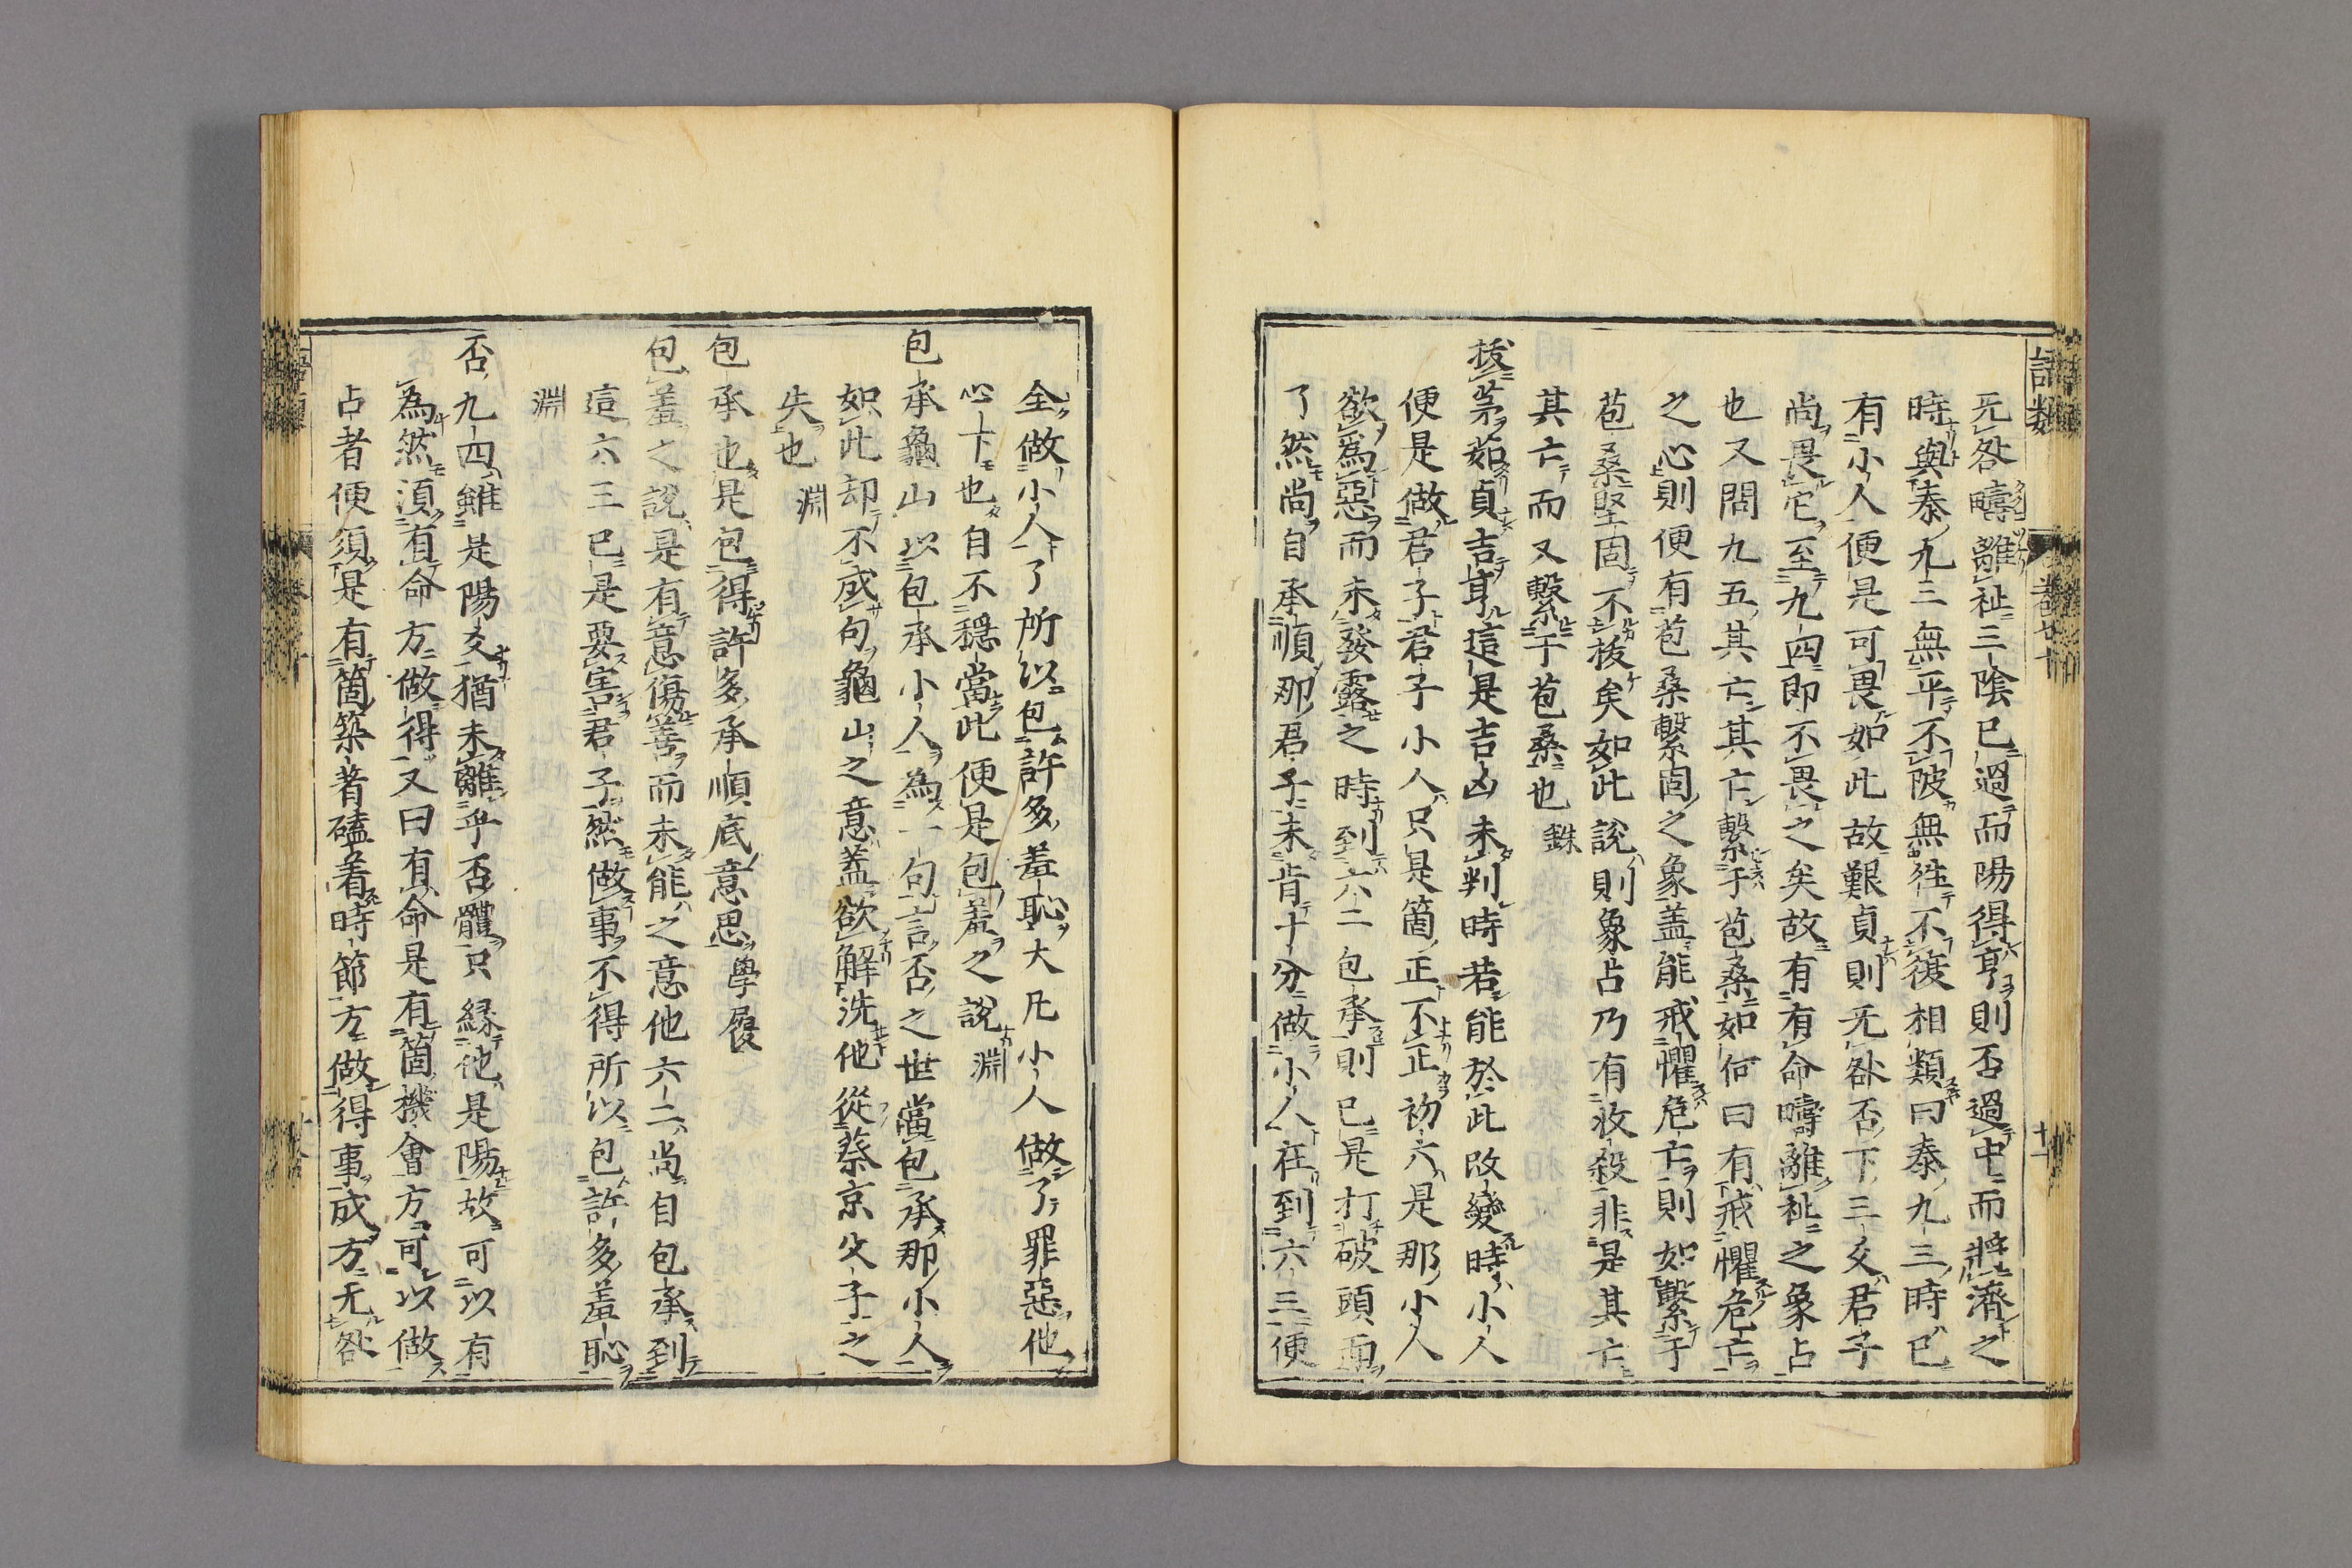 語類
卷七十
十一
无咎疇離祉三陰已過而陽得亨則否過中而將濟之
時與泰九三無平不陂無往不復相類曰泰九三時已
有小人便是可畏如此故艱貞則无咎否下三爻君子
尚畏它至九四即不畏之矣故有有命疇離祉之象占
也又問九五其亡其亡繫于苞桑如何曰有戒懼危亡
之心則便有苞桑繫固之象蓋能戒懼危亡則如繫于
苞桑堅固不拔矣如此說則象占乃有收殺非是其亡
其亡而又繫于苞桑也 銖
拔茅茹貞吉亨這是吉凶未判時若能於此改變時小人
便是做君子君子小人只是箇正不正初六是那小人
欲為惡而未發露之時到六二包承則已是打破頭面
了然尚自承順那君子未肯十分做小人在到六三便
全做小人了所以包許多羞恥大凡小人做了罪惡他
心下也自不穩當此便是包羞之說 淵
包承龜山以包承小人為一句言否之世當包承那小人
如此却不成句龜山之意蓋欲解洗他從蔡京父子之
失也 淵
包承也是包得許多承順底意思 學履
包羞之說是有意傷善而未能之意他六二尚自包承到
這六三已是要害君子然做事不得所以包許多羞恥
淵
否九四雖是陽爻猶未離乎否體只緣他是陽故可以有
為然須有命方做得又曰有命是有箇機會方可以做
占者便須是有箇築著磕著時節方做得事成方无咎